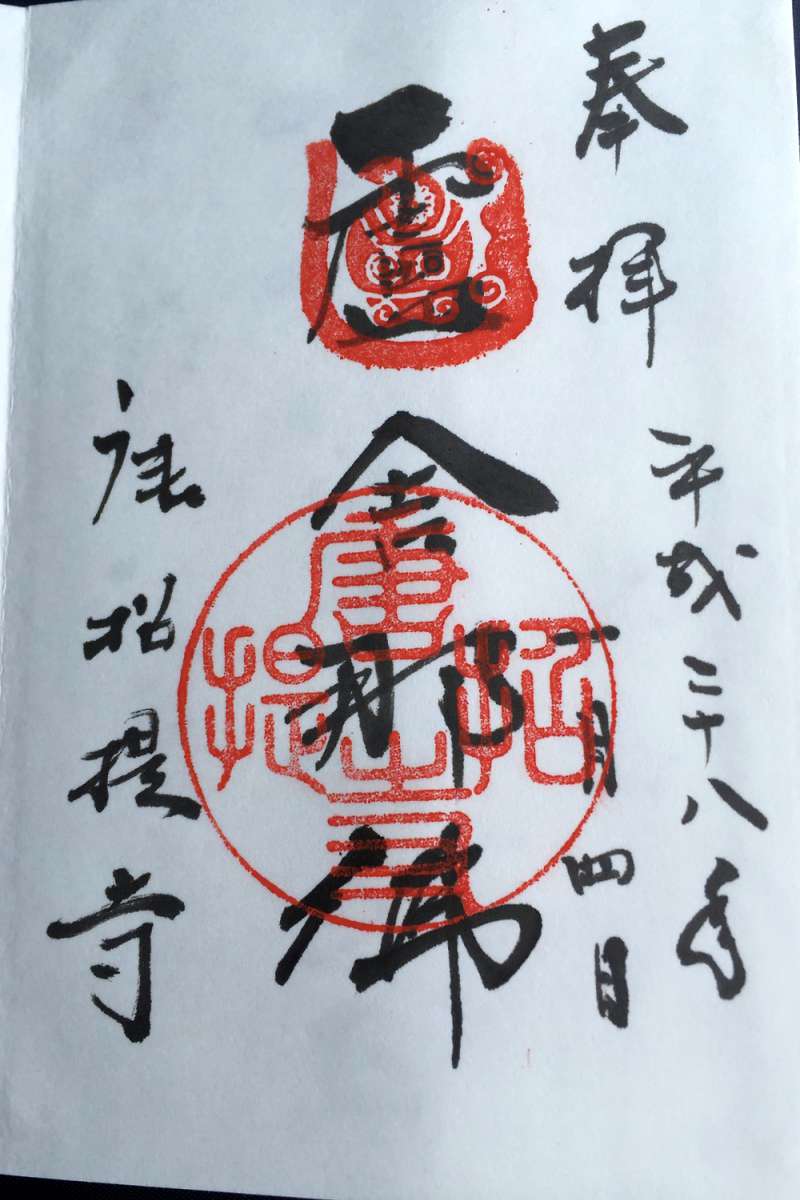 奉拝
平成二十八年
一月四日
盧舎那佛
唐招提寺
唐招提寺